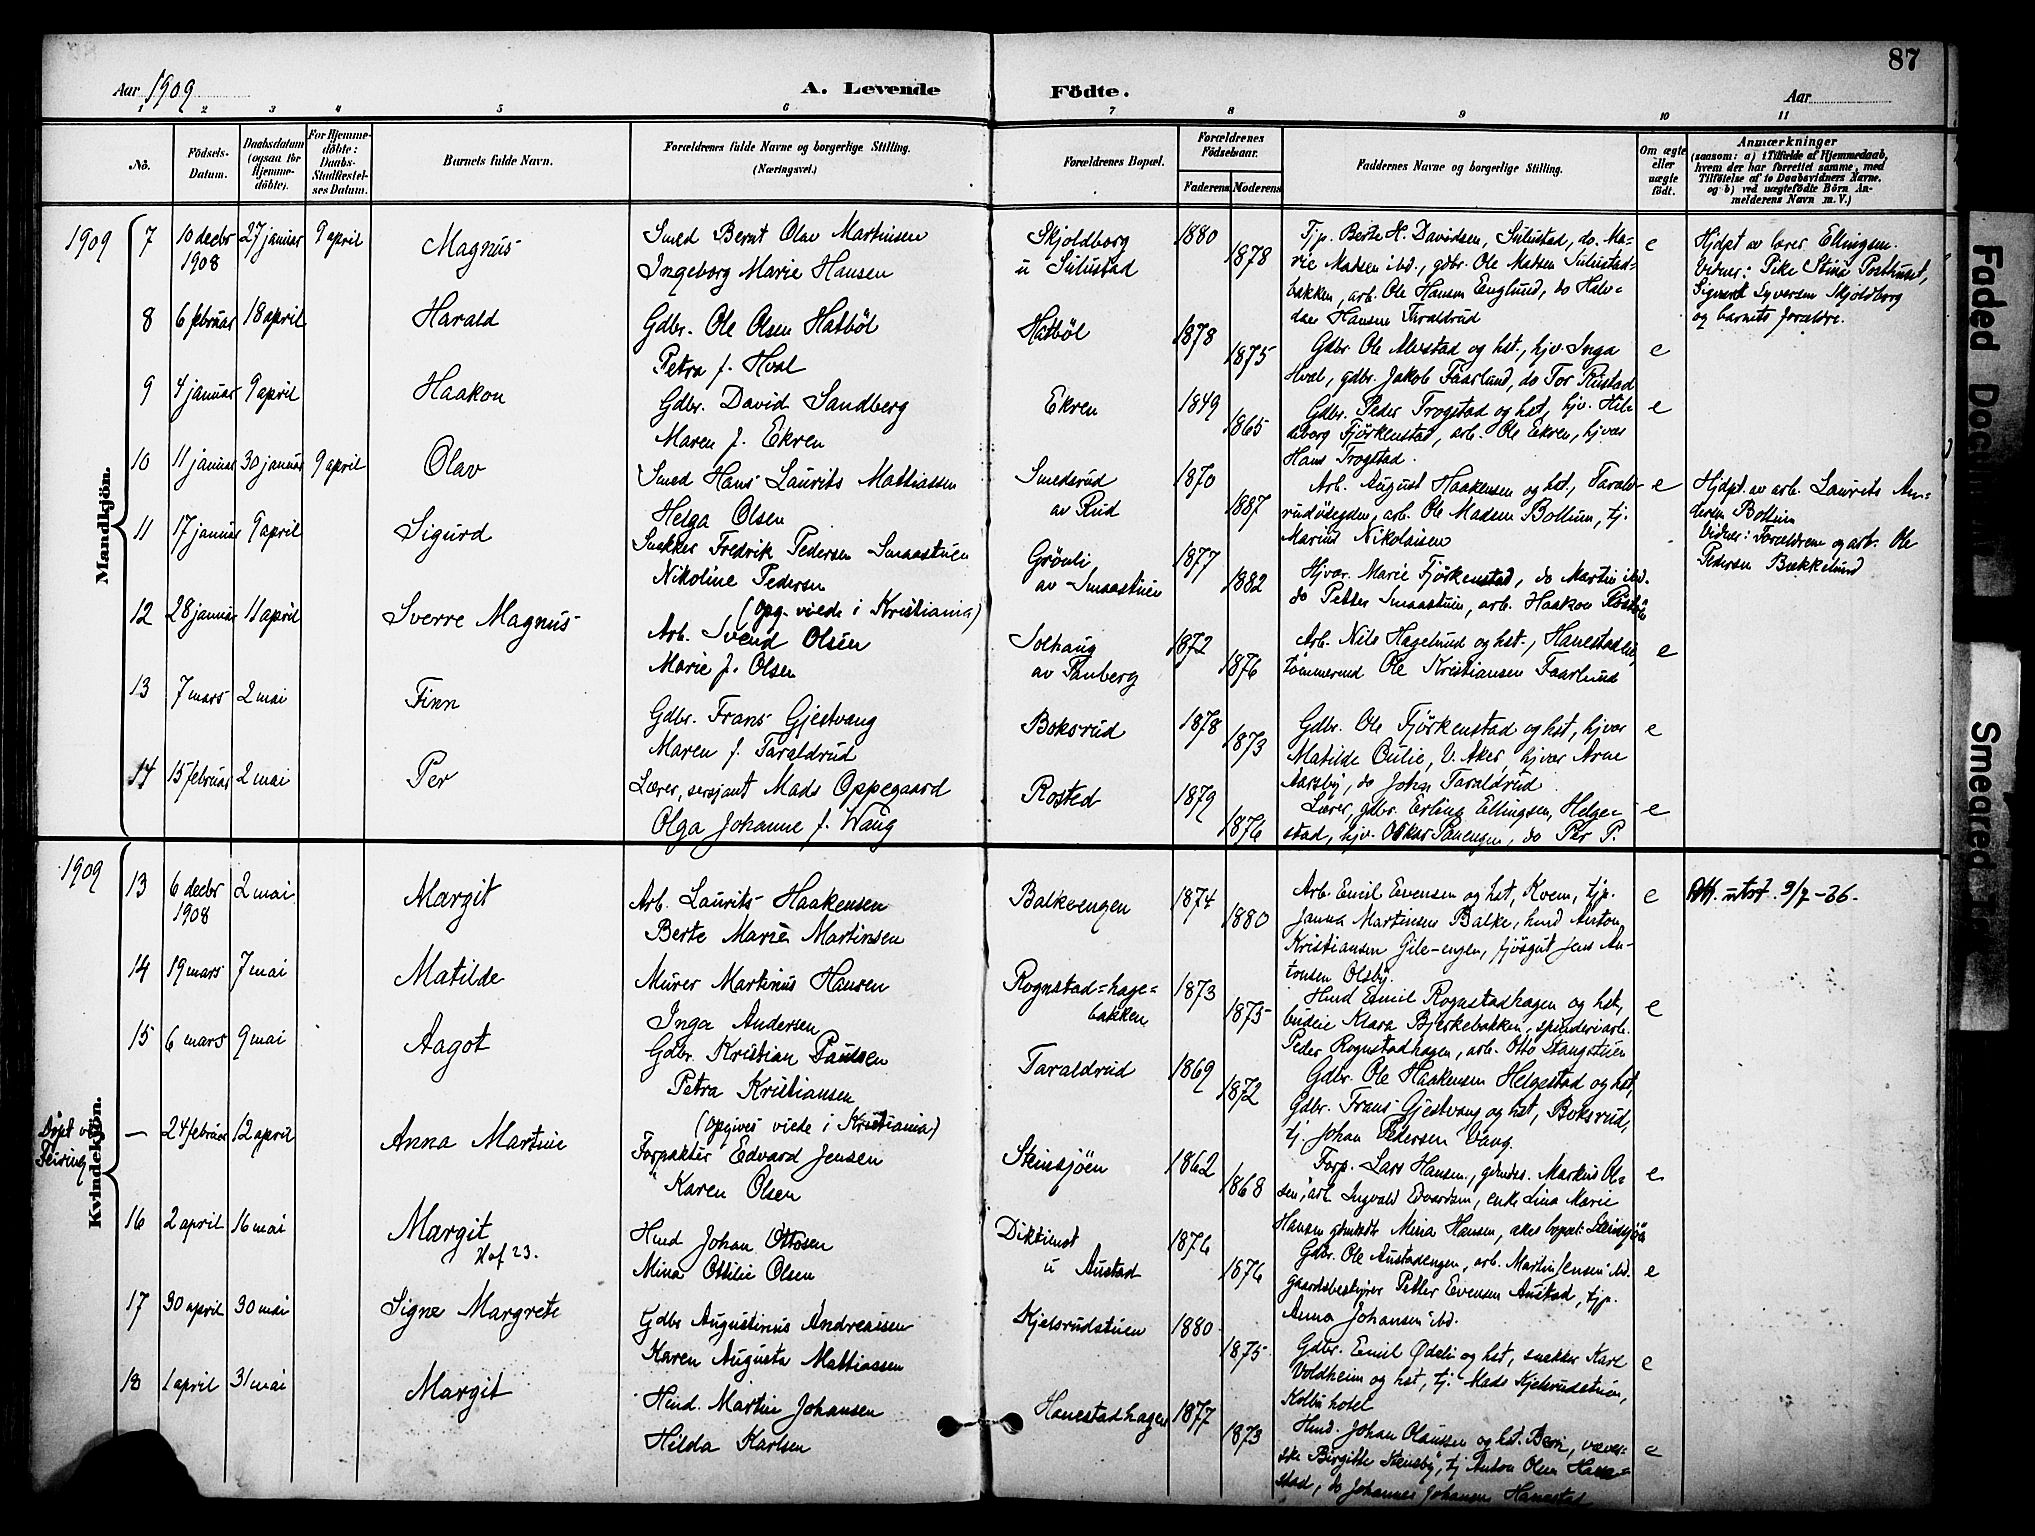 87
Aar 1909
A. Levende
Födte.
Aar
1 2 3 4 5 6 7 8 9 10 11
No.
Födsels-Datum.
Daabsdatum (ogsaa for Hjemmedöbte).
For Hjemmedöbte: Daabs-Stadfæstelses Datum.
Barnets fulde Navn.
Forældrenes fulde Navne og borgerlige Stilling. (Næringsvei.)
Forældrenes Bopæl.
Forældrenes Födselsaar.
Faderens Moderens
Faddernes Navne og borgerlige Stilling.
Om ægte eller uægte födt.
Anmærkninger
(saasom: a) i Tilfælde af Hjemmedaab, hvem der har forrettet samme, med Tilföielse af to Daabsvidners Navne, og b) ved uægtefödte Börn Anmelderens Navn m. V.)
Mandkjön.
1909 7 10 decbr 1908 27 januar 9 april Magnus
Smed Bernt Olav Martinsen
Ingeborg Marie Hansen
Skjoldborg
u Sulustad
1880 1878
Tjp. Berte H. Davidsen, Sulustad, do. Ma-
rie Madsen ibd., gdbr. Ole Madsen Sulustad-
bakken, arb. Ole Hansen Englund, do Halv-
dan Hansen Taraldrud
e
Hjdpt av lærer Ellingsen.
Vidner: Pike Stina Posthuset,
Sigvard Syversen Skjoldborg
og barnets forældre.
8 6 februar 18 april Harald
Gdbr. Ole Olsen Hatböl
Petra f. Hval
Hatböl
1878 1875
Gdbr. Ole Alvstad og hst., hjv. Inga
Hval, gdbr. Jakob Faarlund, do Tor Rustad
e
9 4 januar 9 april Haakon
Gdbr. David Sandberg
Maren f. Ekren
Ekren
1849 1865
Gdbr. Peder Trogstad og hst, hjv. Hil-
deborg Fjörkenstad, arb. Ole Ekren, hjvær
Hans Trogstad.
e
10 11 januar 30 januar 9 april Olav
Smed Hans Laurits Mattiassen
Helga Olsen
Smederud
av Rud
1870 1887
Arb. August Haakensen og hst, Tarald-
rudödegden, arb. Ole Madsen Bollum, tj.
Marius Nikolaisen
e
Hjdpt. av arb. Laurits An-
dersen Bollum
Vidner: Forældrene og arb. Ole
Pedersen Bækkelund
11 17 januar 9 april Sigurd
Snekker Fredrik Pedersen Smaastuen
Nikoline Pedersen
(opg. viede i Kristiania)
Grönli
av Smaastuen
1877 1882
Hjvær. Marie Fjörkenstad, do Martin ibd.
do Petter Smaastuen, arb. Haakon
12 28 januar 11 april Sverre Magnus
Arb. Svend Olsen
Marie f. Olsen
Solhaug
av Panberg
1872 1876
Arb. Nils Hagelund og hst., Hanestadlie,
tömmermd Ole Kristiansen Faarlund
e
13 7 mars 2 mai Finn
Gdbr. Frans Gjestvang
Maren f. Taraldrud
Boksrud
1878 1873
Gdbr. Ole Fjörkenstad og hst, hjvær
Matilde Bulie, V. Aker, hjvær Arne
Aarsby, do Johan Taraldrud.
e
14 15 februar 2 mai Per
Lærer, sersjant Mads Oppegaard
Olga Johanne f. Waug
Rosted
1879 1876
Lærer, gdbr. Erling Ellingsen, Helge-
stad, hjv. Oskar Panengen, do Per P.
e
Kvindekjön.
1909 13 6 decbr 1908 2 mai Margit
Arb. Laurits Haakensen
Berte Marie Martinsen
Balkeengen
1874 1880
Arb. Emil Evensen og hst, Kvem, tjp.
Janna Martinsen Balke, hmd Anton
Kristiansen Gile-engen, fjösgut Jens An-
tonsen Olsby.
e
Att. utst. 9/7-36.
14 19 mars 7 mai Matilde
Murer Martinus Hansen
Inga Andersen
Rognstad=hage=
bakken
1873 1875
Hmd Emil Rognstadhagen og hst,
budeie Klara Bjerkebakken, spinderiarb.
Peder Rognstadhagen, arb. Otto Stangstuen
e
15 6 mars 9 mai Aagot
Gdbr. Kristian Paulsen
Petra Kristiansen
(opgives viede i Kristiania)
Taraldrud
1869 1872
Gdbr. Ole Haakensen Helgestad og hst,
Gdbr. Frans Gjestvang og hst, Boksrud,
tj. Johan Pedersen Vang.
Döpt v. Feiring
— 24 februar 12 april Anna Martine
Forpakter Edvard Jensen
" Karen Olsen
Steinsjöen
1862 1868
Forp. Lars Hansen, gdmds. Markus Ol-
sen, arb. Ingvald Edvardsen, enke Lina Marie
Hansen gbrukdtr Mina Hansen, alles bopæl: Steinsjöen
e
16 2 april 16 mai Margit
Hof 23.
Hmd Johan Ottosen
Mina Ottilie Olsen
Diktienst
u Austad
1876 1876
Gdbr. Ole Austadengen, arb. Martin Jensen ibd.
gaardsbestyrer Petter Evensen Austad, tjp.
Anna Johansen ibd.
e
17 30 april 30 mai Signe Margrete
Gdbr Augustinus Andreassen
Karen Augusta Mattiassen
Kjelsrudstuen
1880 1875
Gdbr. Emil Ödeli og hst, snekker Karl
Voldheim og hst, tj. Mads Kjelsrudstuen,
Kolbu hotel
e
18 1 april 31 mai Margit
Hmd. Martin Johansen
Hilda Karlsen
Hanestadhagen
1877 1873
Hmd. Johan Olaussen og hst. Bern, væver-
ske Birgitte Stensby, tj Anton Olsen Hane=
stad, do Johannes Johansen Hanestad
e
Faded Doc
Smeared